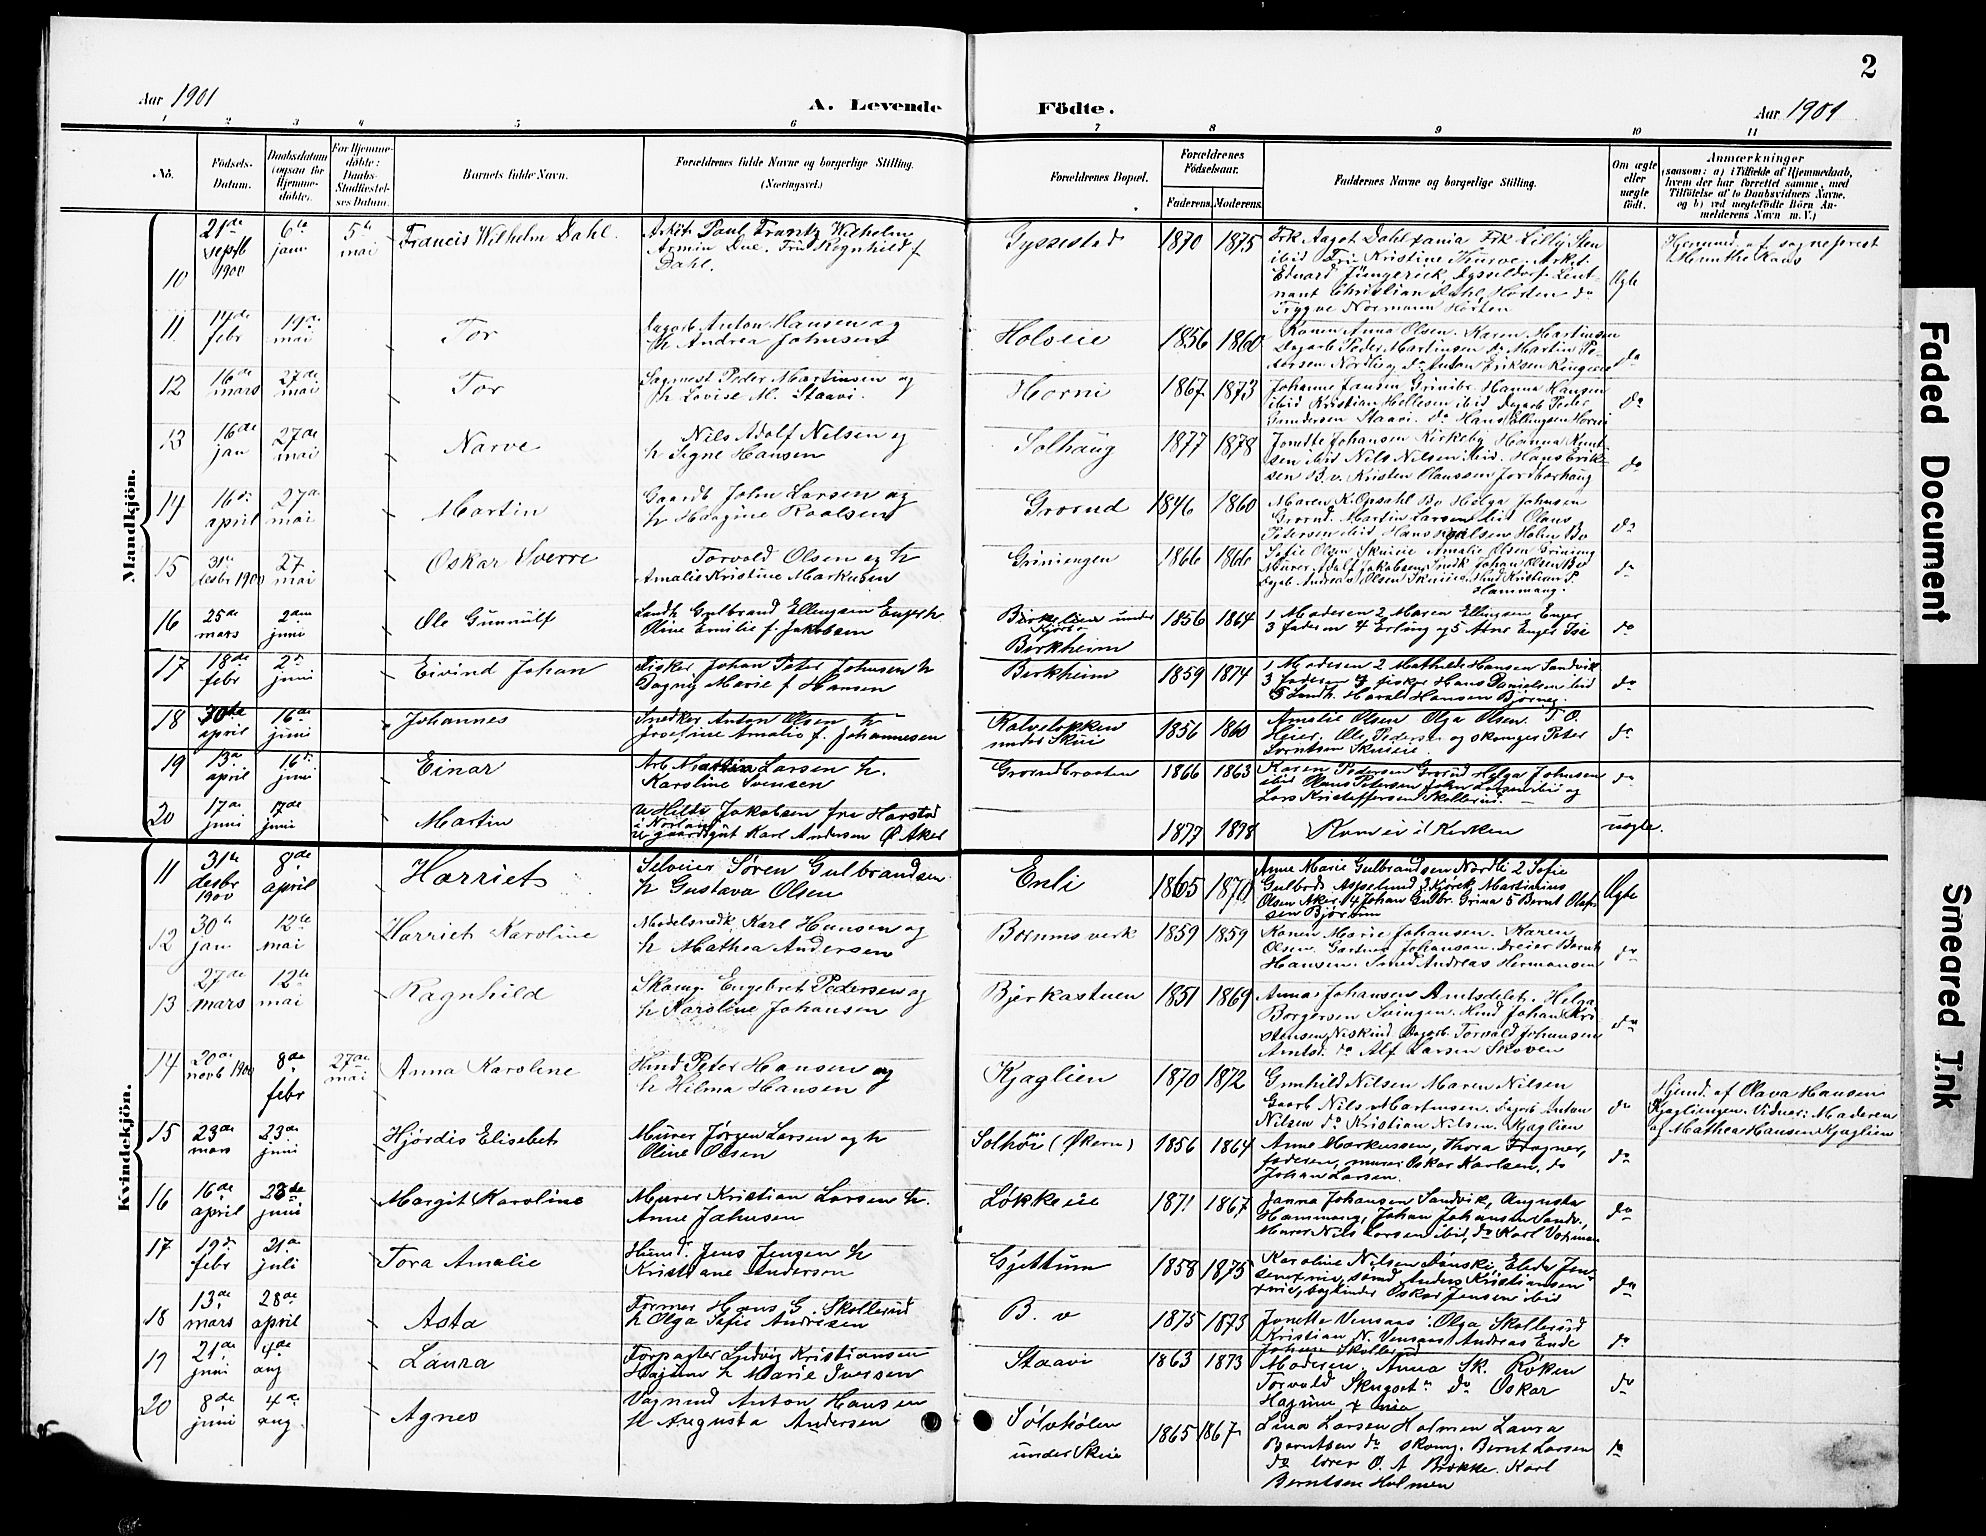 2
Aar 1901
A. Levende
Födte.
Aar 1901
1 2 3 4 5 6 7 8 9 10 11
No.
Födsels-
Datum.
Daabsdatum
(ogsaa for
Hjemme-
døbte).
For Hjemme-
døbte:
Daabs-
Stadfæstel-
ses Datum.
Barnets fulde Navn.
Forældrenes fulde Navne og borgerlige Stilling.
(Næringsvei.)
Forældrenes Bopæl.
Forældrenes
Fødselsaar.
Faderens. Moderens.
Faddernes Navne og borgerlige Stilling.
Om ægte
eller
uægte
født.
Anmærkninger
(saasom: a) i Tilfælde af Hjemmedaab,
hvem der har forrettet samme, med
Tilføielse af to Daabsvidners Navne,
og b) ved uægtefødte Börn An-
melderens Navn m. V.)
Mandkjön.
10
21de
septb
1900
6te
jan
5te
mai
Francis Wilhelm Dahl.
Arkit Paul Frantz Wilhelm
Armin Due. Fru Ragnhild f
Dahl.
Gyssestad
1870 1875
Frk Aagot Dahl xania Frk Lilly Sten
ibid Fru Kristine Thurve. Arkit.
Eduard Jüngerich, Dysseldorf. Leut-
nant Christian Dahl, Horten do
Trygve Normann Horten
Ægte
Hjemmd. af sogneprest
Munthe Kaas
11
febr
19de
mai
Tor
Dagarb. Anton Hansen og
h Andrea Johnsen
Holseie
1856 1860
Karen Anna Olsen. Karen Martinsen
Dagarb Peder Martinsen do Martin Pe-
dersen Nordlieg do Anton Eriksen Ringeri
do
12
16de
mars
27de
mai
Tor
Sagmest Peder Martinsen og
h Lovise M. Staavi.
Horni
1867 1873
Johanne Jansen Grinibr. Hanna Hansen
ibid Kristian Hellesen ibid Dagarb Peder
Gundersen Staavi. do Hans Ellingsen Horni
do
13
16de
jan
27de
mai
Narve
Nils Adolf Nelsen og
h Signe Hansen
Solhaug
1877 1878
Jonette Johansen Kirkeby Hanna Knut-
sen ibid Nils Nilsen ibid. Hans Erik-
sen B. v. Kristen Clausen Jordbærhaug
do
14
april
27de
mai
Martin
Gaardb John Larsen og
h Haagine Paalsen
Grorud
1846 1860
Maren K. Opsahl Bv Helga Johnsen
Grorud. Martin Larsen ibid Olaus
Petersen ibid Hans Holm Bv
do
15
31te
desbr 1900
27
mai
Oskar Sverre
Torvald Olsen og h
Amalie Kristine Markusen
Griniengen
1866 1866
Sofie Olsen Skuieie Amalie Olsen Grinieng
Murer Adolf Jakobsen Snedk Johan Olsen Bv
Dagarb. Andreas Olsen Skuieie Hmd Kristian P.
Hammang.
do
16
25de
mars
2den
juni
Ole Gunnulf
Landh Gulbrand Ellingsen Enger h
Oline Emilie f. Jakobsen
Birkelien under
Kjørbo
Berkheim
1856 1864
1 Moderen 2 Maren Ellingsen Enger
3 faderen 4 Erling og 5 Arne Enger Tie
do
17
18de
febr
juni
Eivind Johan
Fisker Johan Peter Johnsen h
Dagny Marie f Hansen
Berkheim
1859 1874
1 Moderen 2 Mathilde Hansen Sandvik
3 faderen 4 fisker Hans Danielsen ibid
5 Landh. Harald Hansen Bjørneg.
do
18
30te
april
16de
juni
Johannes
Snedker Anton Olsen h
Josefine Amalie f. Johannesen
Kalveløkken
under Skui
1856 1860
Amalie Olsen Olga Olsen. T. O.
Heier. Ole Pedersen og skomager Peter
Berntsen Skuieie
do
19
april
juni
Einar
Arb. Larsen h.
Karoline Svensen
Grorudbraaten
1866 1863
Karen Pedersen Grorud Helga Johnsen
ibid Hans Petersen John Larsen ibid og
Lars Kristoffersen Skollerud.
do
20
17de
juni
17de
juni
Martin
Hilda Jakobsen fra Harstad
i Norland
Karl Andersen Ø. Aker
1877 1878
Kom ei i Kirken
uægte.
Kvindekjön.
11
31te
desbr
1900
8de
april
Harriet
Selveier Søren Gulbrandsen
h Gustava Olsen
Enli
1865 1870
Anne Marie Gulbrandsen Nordli 2 Sofie
Gulbrds Aspelund 3 Martinius
Olsen Aker 4 Johan Gulbr. Grina 5 Bernt Olaf-
sen Bjørum
Ægte
12
30te
jan
12te
mai
Harriet Karoline
Modelsnedk. Karl Hansen og
h Mathea Andersen
Bærums verk
1859 1859
Karen Marie Johansen. Karen
Olsen. Gartner Johansen. Dreier Bernt
Hansen Smed Andreas Hermansen
do
13
27de
mars
12te
mai
Ragnhild
Skomg. Engebret Pedersen og
h Karoline Johansen
Bjerkastuen
1851 1869
Anna Johansen Amtsdelet. Helga
Borgersen Svingen. Hmd Johan Kri
stensen Niskind Dagarb. Torvald Johansen
Amtsd. do Alf Larsen Skoven
do
14
20de
novb 1900
8de
febr
27de
mai
Anna Karoline
Hmd Peter Hansen og
h Hilma Hansen
Kjaglien
1870 1872
Gunhild Nilsen Maren Nilsen
Gaarb Nils Martinsen. Dagarb Anton
Nilsen do Kristian Nilsen. Kjaglien
do
Hjemd. af Olava Hansen
Kjagliengen. Vidner: Moderen
og Mathea Hansen Kjaglien
15
23de
mars
23de
juni
Hjördis Elisabet
Murer Jørgen Larsen og h
Oline Olsen
Solhöi (Økern)
1856 1864
Anne Markussen, Thora Fragner,
faderen, murer Oskar Karlsen, do
Johan Larsen.
do
16
16de
april
23de
juni
Margit Karoline
Murer Kristian Larsen h.
Anne Johnsen
Løkkeie
1871 1867
Janna Johansen Sandvik, Augusta
Hammang, Johan Johansen Sandv.,
Murer Nils Larsen ibid, do Karl
do
17
febr
juli
Tora Amalie
Husm. Jens Jensen h
Kristiane Anderson
Gjettum
1858 1875
Karoline Nilsen Elede Jen-
sen smed Anders Kristiansen
Oskar Jensen ibid
do
18
13de
mars
28de
april
Asta
Former Hans G. Skollerud
h Olga Sofie Andresen
B. v
1875 1873
Jonette Vensaas. Olga Skollerud
Kristian N. Vensaas Andreas Ende
Johan Skollerud
do
19
21de
juni
4de
aug
Laura
Forpagter Ludvig Kristiansen
Hagum h Marie Iversen
Staavi
1863 1873
Moderen. Anna Sk. Röken
Torvald do Oskar
Hagum
do
20
8de
juni
aug.
Agnes
Vognmd Anton Hansen
h Augusta Andersen
Sølvhølen
under Skui
1865 1867
Lina Larsen Holmen Laura
Berntsen do skomg. Bernt Larsen
do lærer O. A Brække. Karl
Berntsen Holmen
do
Faded Document
Smeared Ink